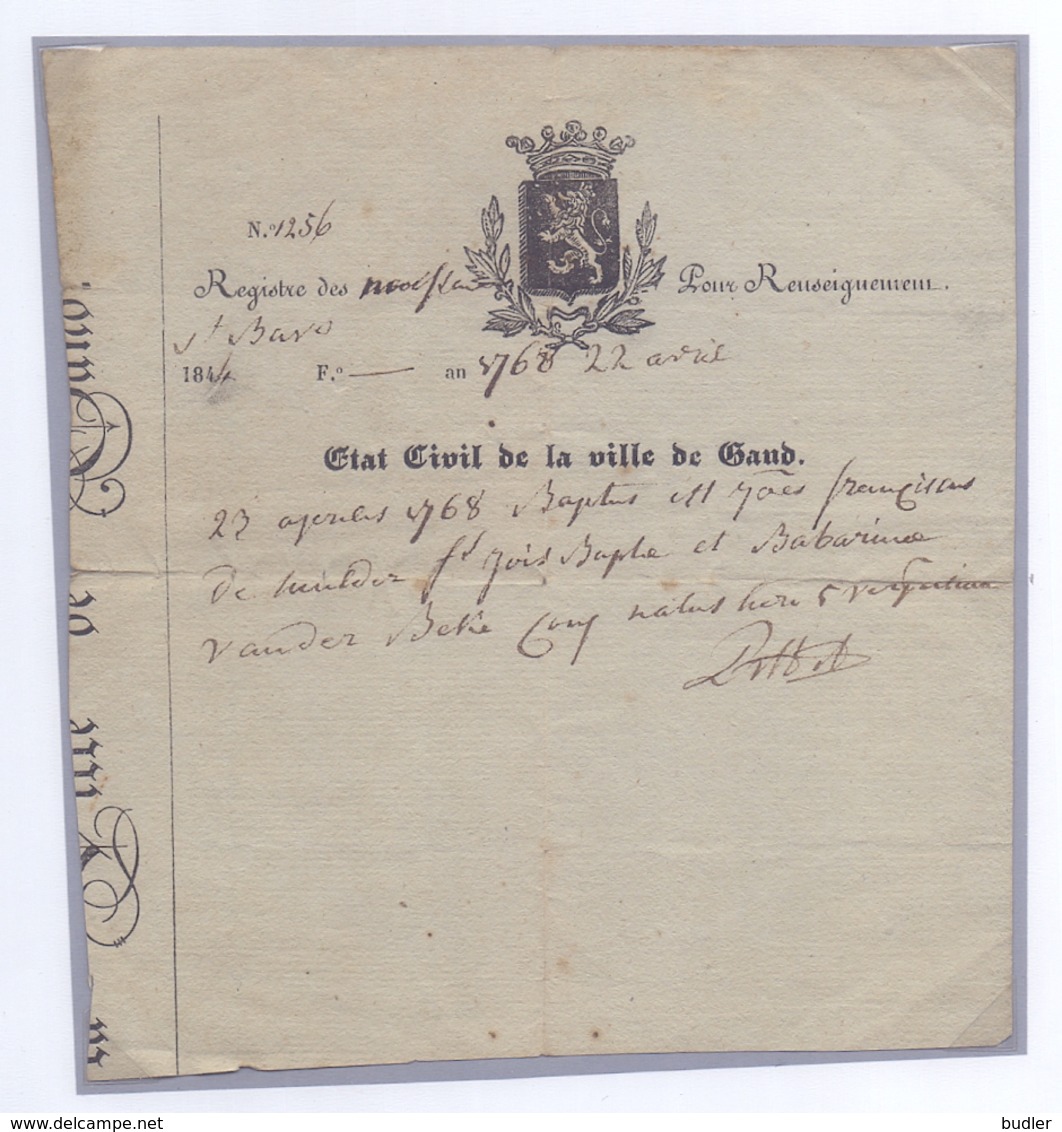 N.º 1256
Registre des
Pour Renseignement.
St Bavo
1844 F.º — an 1768 22 avril
Etat Civil de la ville de Gand.
23 aprilis 1768 Baptus est Joës franciscus
De Mulder fs Jois Bapte et Babarinae
vander Beke Conj natus heri 5
de
delcampe.net
budler